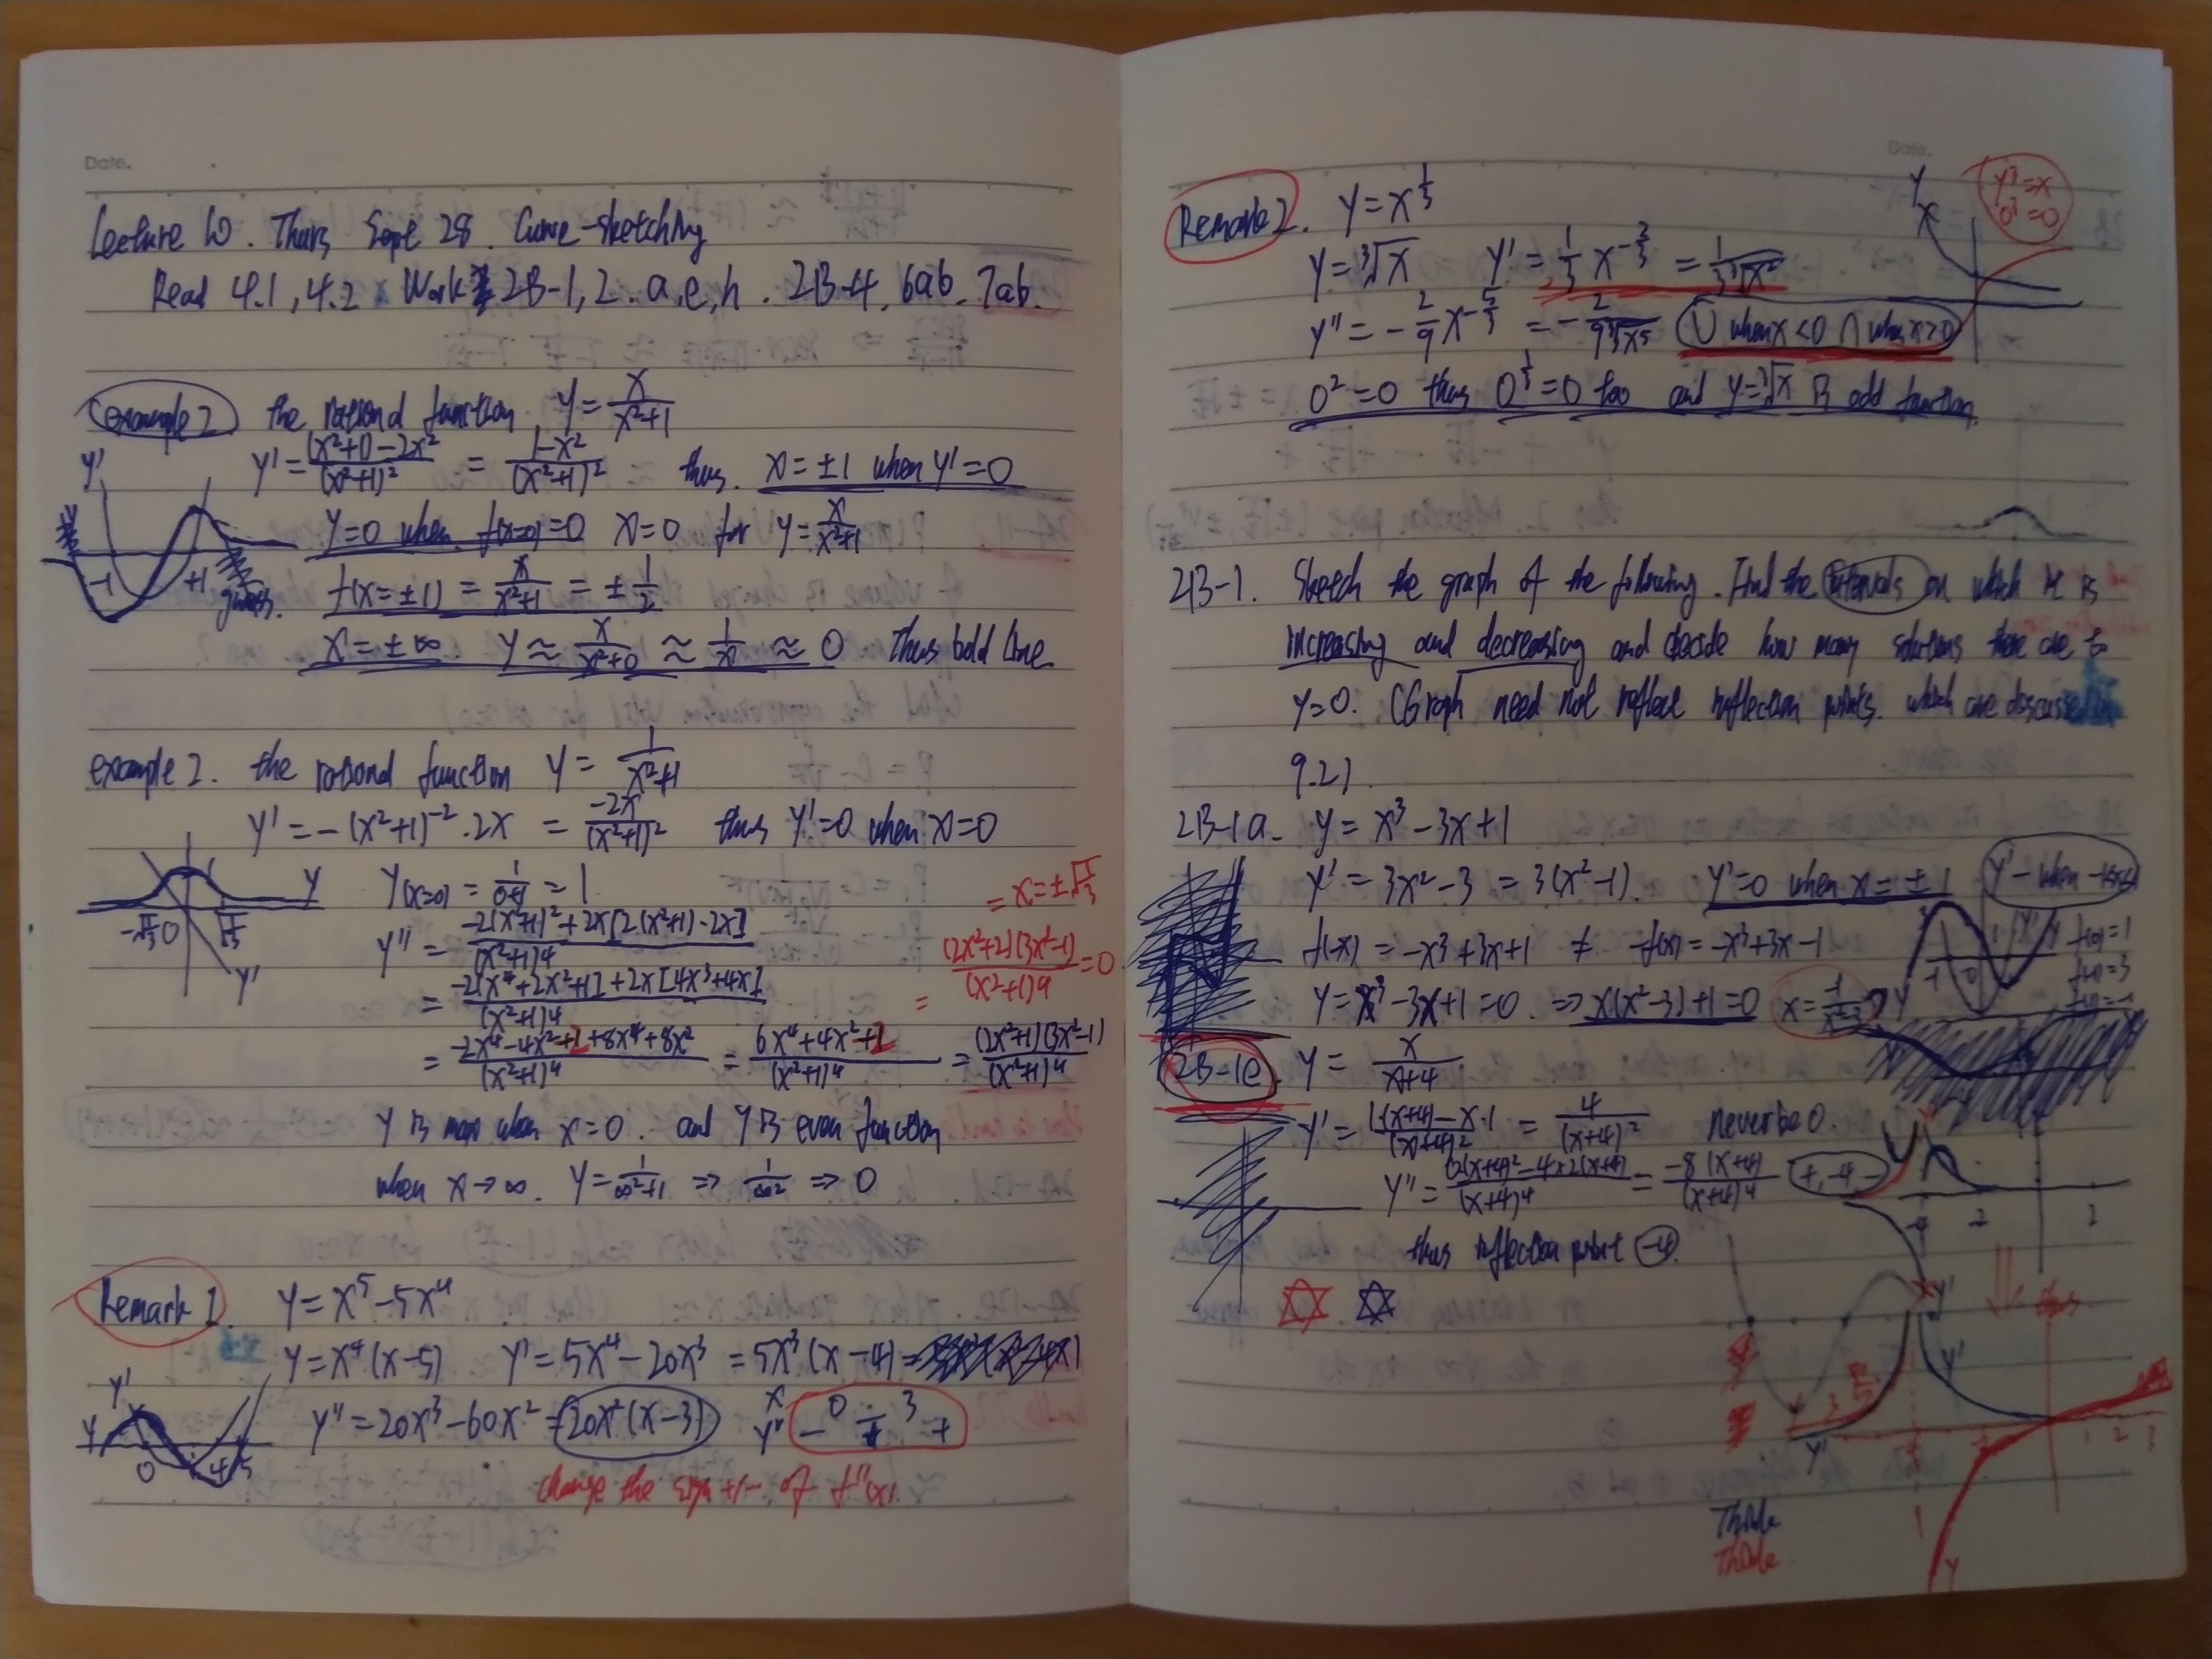 Date.
Lecture 10. Thurs Sept 28. Curve-sketching
Read 4.1, 4.2 Work 2B-1, 2. a, e, h. 2B-4, 6ab. 7ab.
example 2 the rational function y = x/(x²+1)
y' = ((x²+1)-2x²)/(x²+1)² = (1-x²)/(x²+1)² thus. x=±1 when y'=0
y=0 when f(x=0)=0 x=0 for y = x/(x²+1)
f(x=±1) = x/(x²+1) = ±1/2
x=±∞ y ≈ x/(x²+0) ≈ 1/x ≈ 0 thus bold line
y'
-1 +1
guess.
example 2. the rational function y = 1/(x²+1)
y' = -(x²+1)⁻²·2x = -2x/(x²+1)² thus y'=0 when x=0
y(x=0) = 1/(0+1) = 1
y'' = (-2(x²+1)²+2x[2(x²+1)·2x])/(x²+1)4
= (-2[x⁴+2x²+1]+2x[4x³+4x])/(x²+1)4
= (-2x⁴-4x²+2+8x⁴+8x²)/(x²+1)⁴ = (6x⁴+4x²+2)/(x²+1)⁴ = (2x²+1)(3x²-1)/(x²+1)⁴
= (2x²+2)(3x²-1)/(x²+1)4 = 0
= x=±√(1/3)
-√(1/3) 0 √(1/3) y
y'
y is max when x=0. and y is even function
when x→∞. y = 1/(∞²+1) ⇒ 1/∞² ⇒ 0
Remark 1. y = x⁵-5x⁴
y = x⁴(x-5) y' = 5x⁴-20x³ = 5x³(x-4)
y'' = 20x³-60x² = 20x²(x-3)
x 0 3
y'' - - +
y y' 0 4 5
change the sign +/- of f''(x).
Date.
Remark 2. y = x^(1/3)
y = ∛x y' = 1/3 x^(-2/3) = 1/(3∛x²)
y'' = -2/9 x^(-5/3) = -2/(9∛x⁵) ∪ when x<0 ∩ when x>0
0²=0 thus 0^(1/3)=0 too and y=∛x is odd function.
y
y³=x
0³=0
2B-1. Sketch the graph of the following. Find the intervals on which it is
increasing and decreasing and decide how many solutions there are to
y=0. (Graph need not reflect inflection points. which are discussed in
9.2)
2B-1a. y = x³-3x+1
y' = 3x²-3 = 3(x²-1). y'=0 when x=±1 y' - when -1<x<1
f(-x) = -x³+3x+1 ≠ -f(x) = -x³+3x-1
y = x³-3x+1=0. ⇒ x(x²-3)+1=0 x = -1/(x²-3)
-1 0 1 y' y
f(0)=1
f(-1)=3
f(1)=-1
2B-1e y = x/(x+4)
y' = (1·(x+4)-x·1)/(x+4)² = 4/(x+4)² never be 0.
y'' = (0(x+4)²-4×2(x+4))/(x+4)⁴ = -8(x+4)/(x+4)⁴ +, -4, -
thus inflection point -4.
-4 -2 2
y'
thus
y'
y'
1 2 3
y